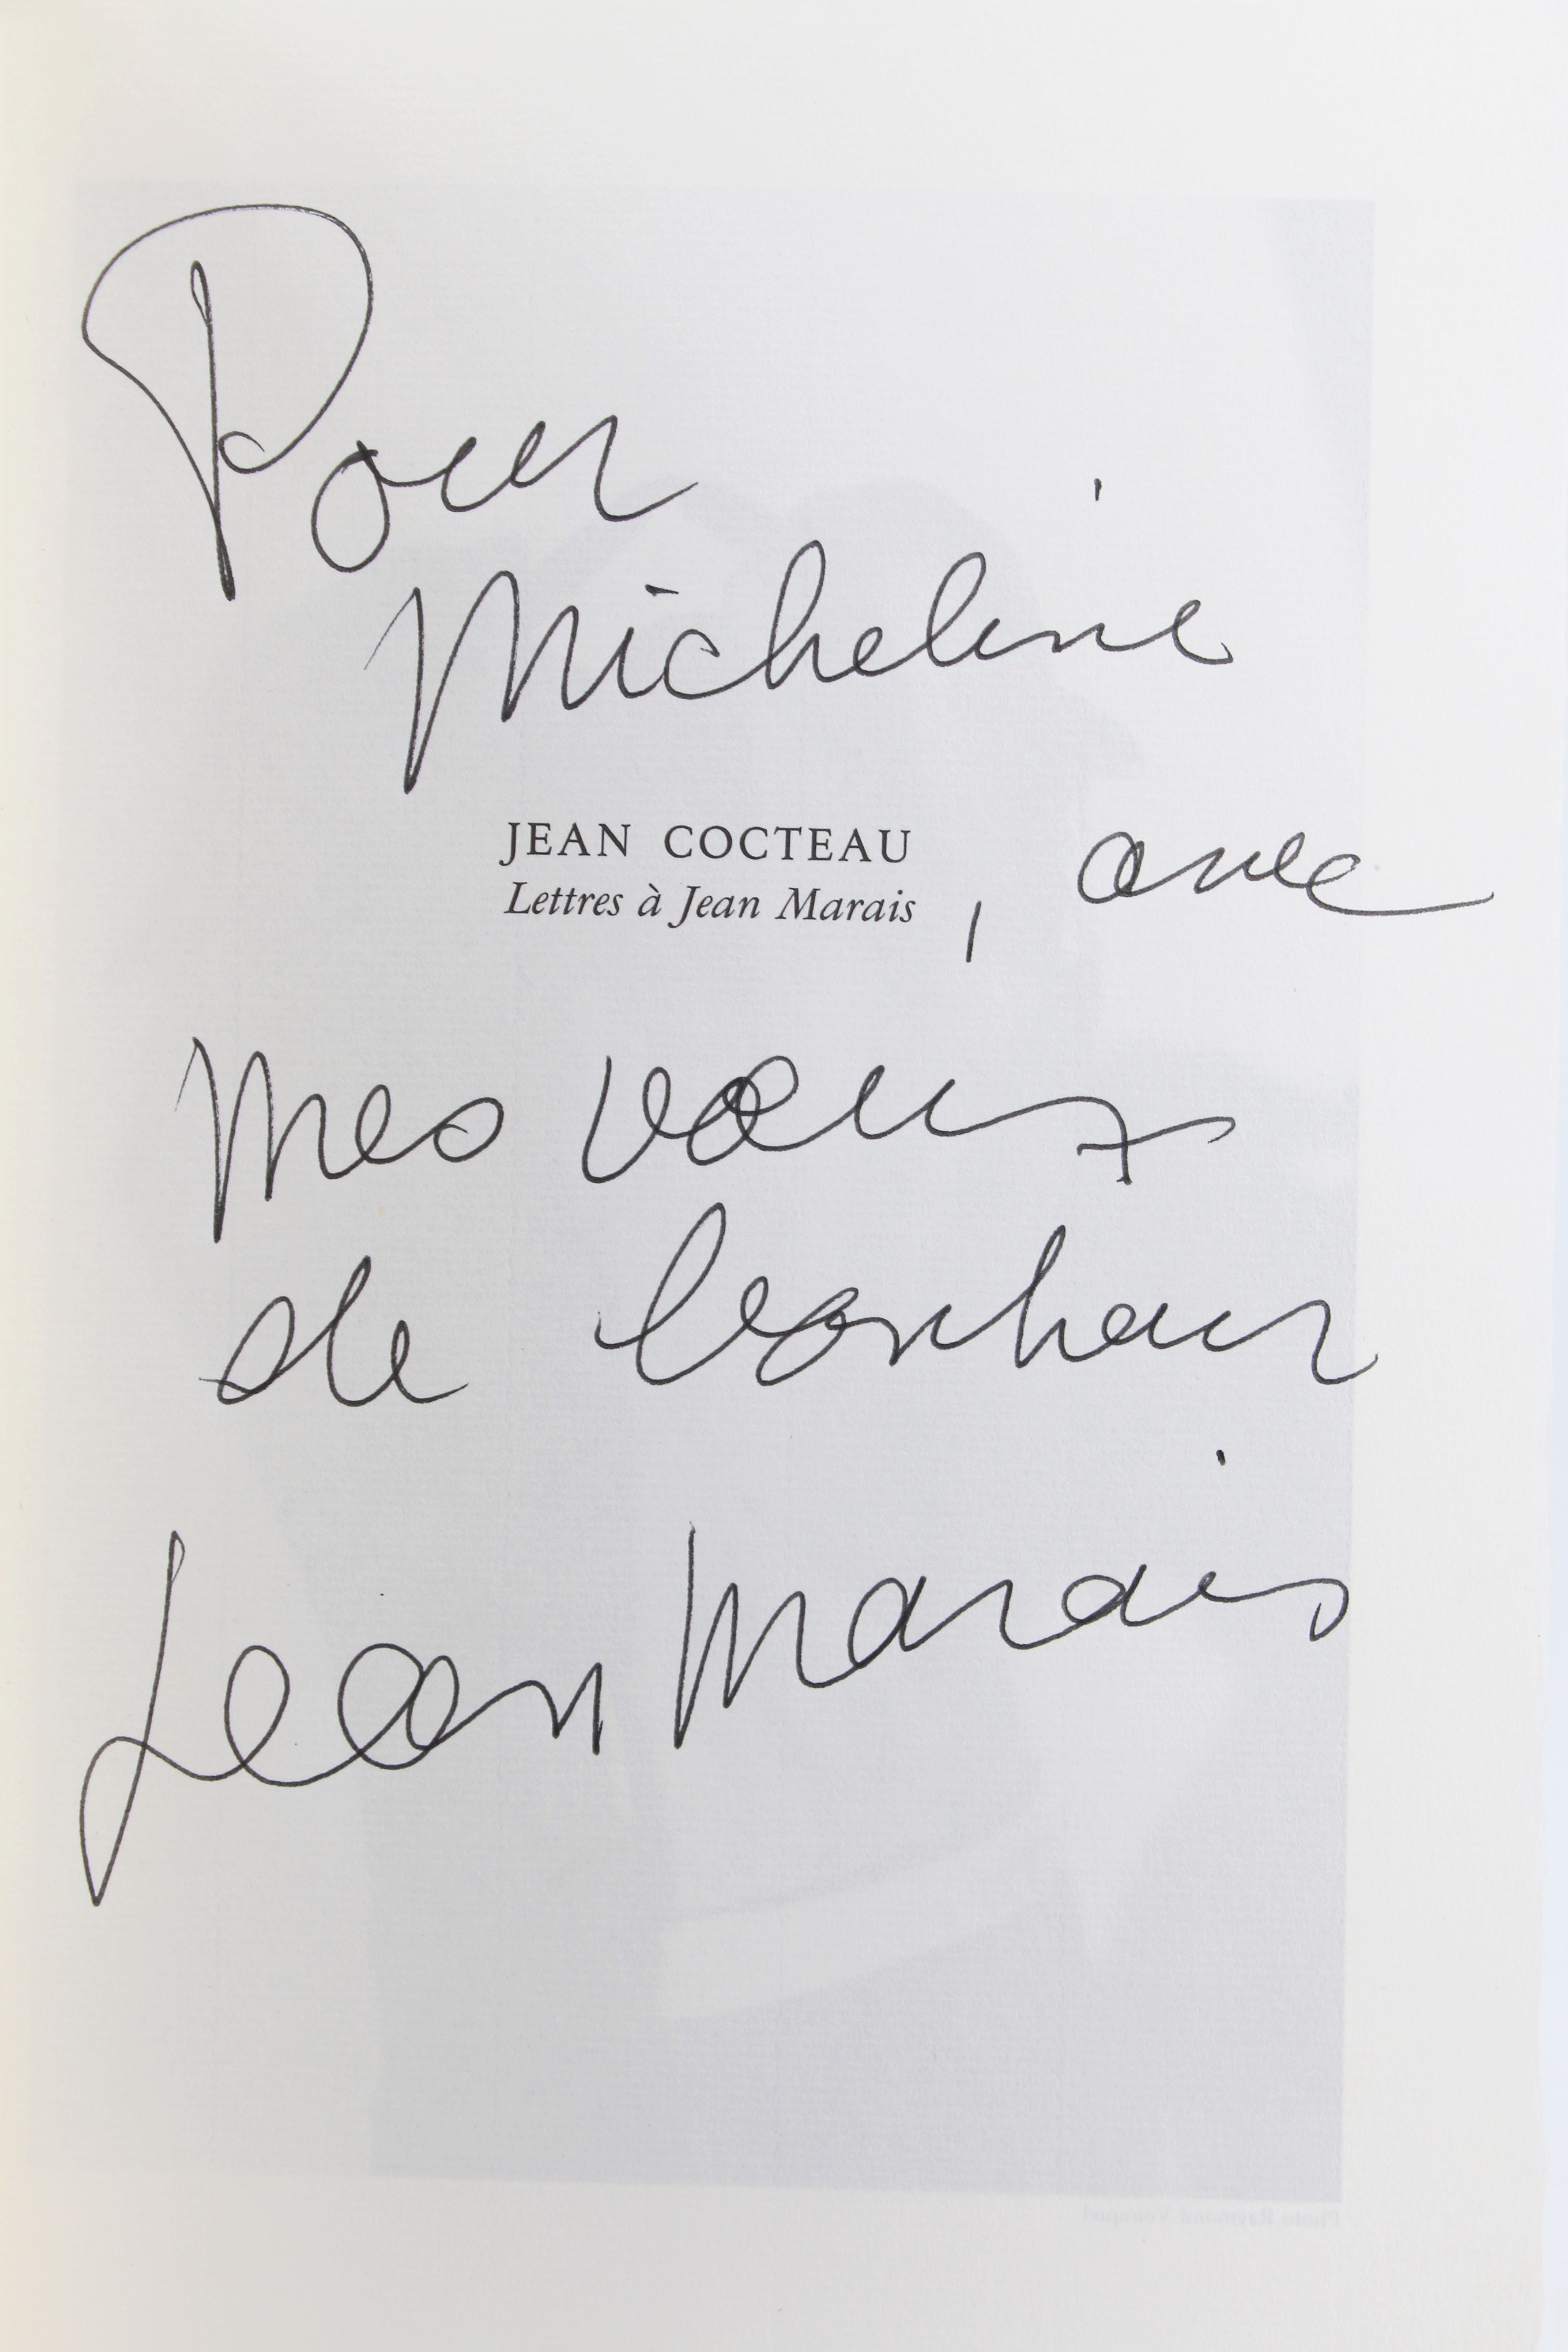 Pour
Micheline
JEAN COCTEAU
Lettres à Jean Marais
, avec
mes vœux
de bonheur
Jean Marais
Photo Raymond Voinquel